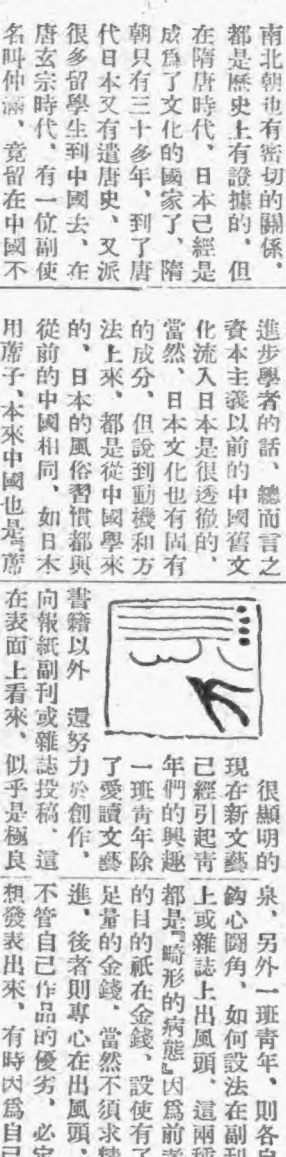 南北朝也有密切的關係、
都是歷史上有證據的、但
在隋唐時代、日本已經是
成爲了文化的國家了、隋
朝只有三十多年、到了唐
代日本又有遣唐史、又派
很多留學生到中國去、在
唐玄宗時代、有一位副使
名叫仲滿、竟留在中國不
進步學者的話、總而言之
資本主義以前的中國舊文
化流入日本是很透徹的、
當然、日本文化也有固有
的成分、但說到動機和方
法上來、都是從中國學來
的、日本的風俗習慣都與
從前的中國相同、如日本
用席子、本來中國也是『席
很顯明的
現在新文藝
已經引起靑
年們的興趣
一班靑年除
了愛讀文藝
書籍以外 還努力於創作、
向報紙副刊或雜誌投稿、這
在表面上看來、似乎是極良
泉、另外一班靑年、則各自
鈎心鬪角、如何設法在副刊
上或雜誌上出風頭、這兩種
都是『畸形的病態』因爲前者
的目的祇在金錢、設使有了
足量的金錢、當然不須求精
進、後者則專心在出風頭、
不管自己作品的優劣、必定
想發表出來、有時因爲自己